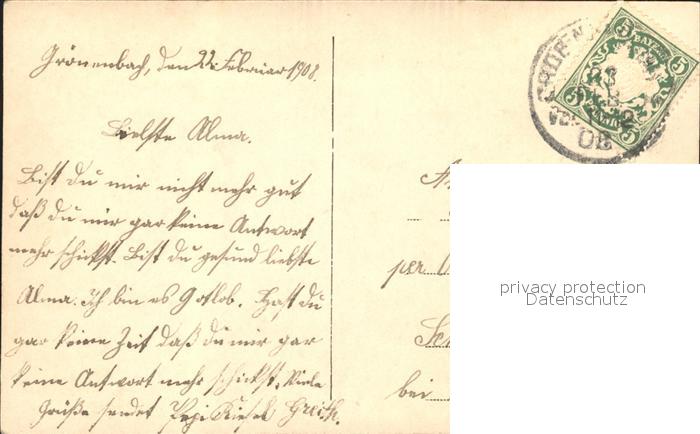 Grönenbach, den 22. Februar 1908.
Liebste Alma.
Bist du mir nicht mehr gut
daß du mir gar keine Antwort
mehr schickst. Bist du gesund liebste
Alma. Ich bin es Gotlob. Hast du
gar keine Zeit daß du mir gar
keine Antwort mehr schickst. Viele
Grüße sendet Pepi
5 BAYERN 5
5 5
08
per
bei
privacy protection
Datenschutz